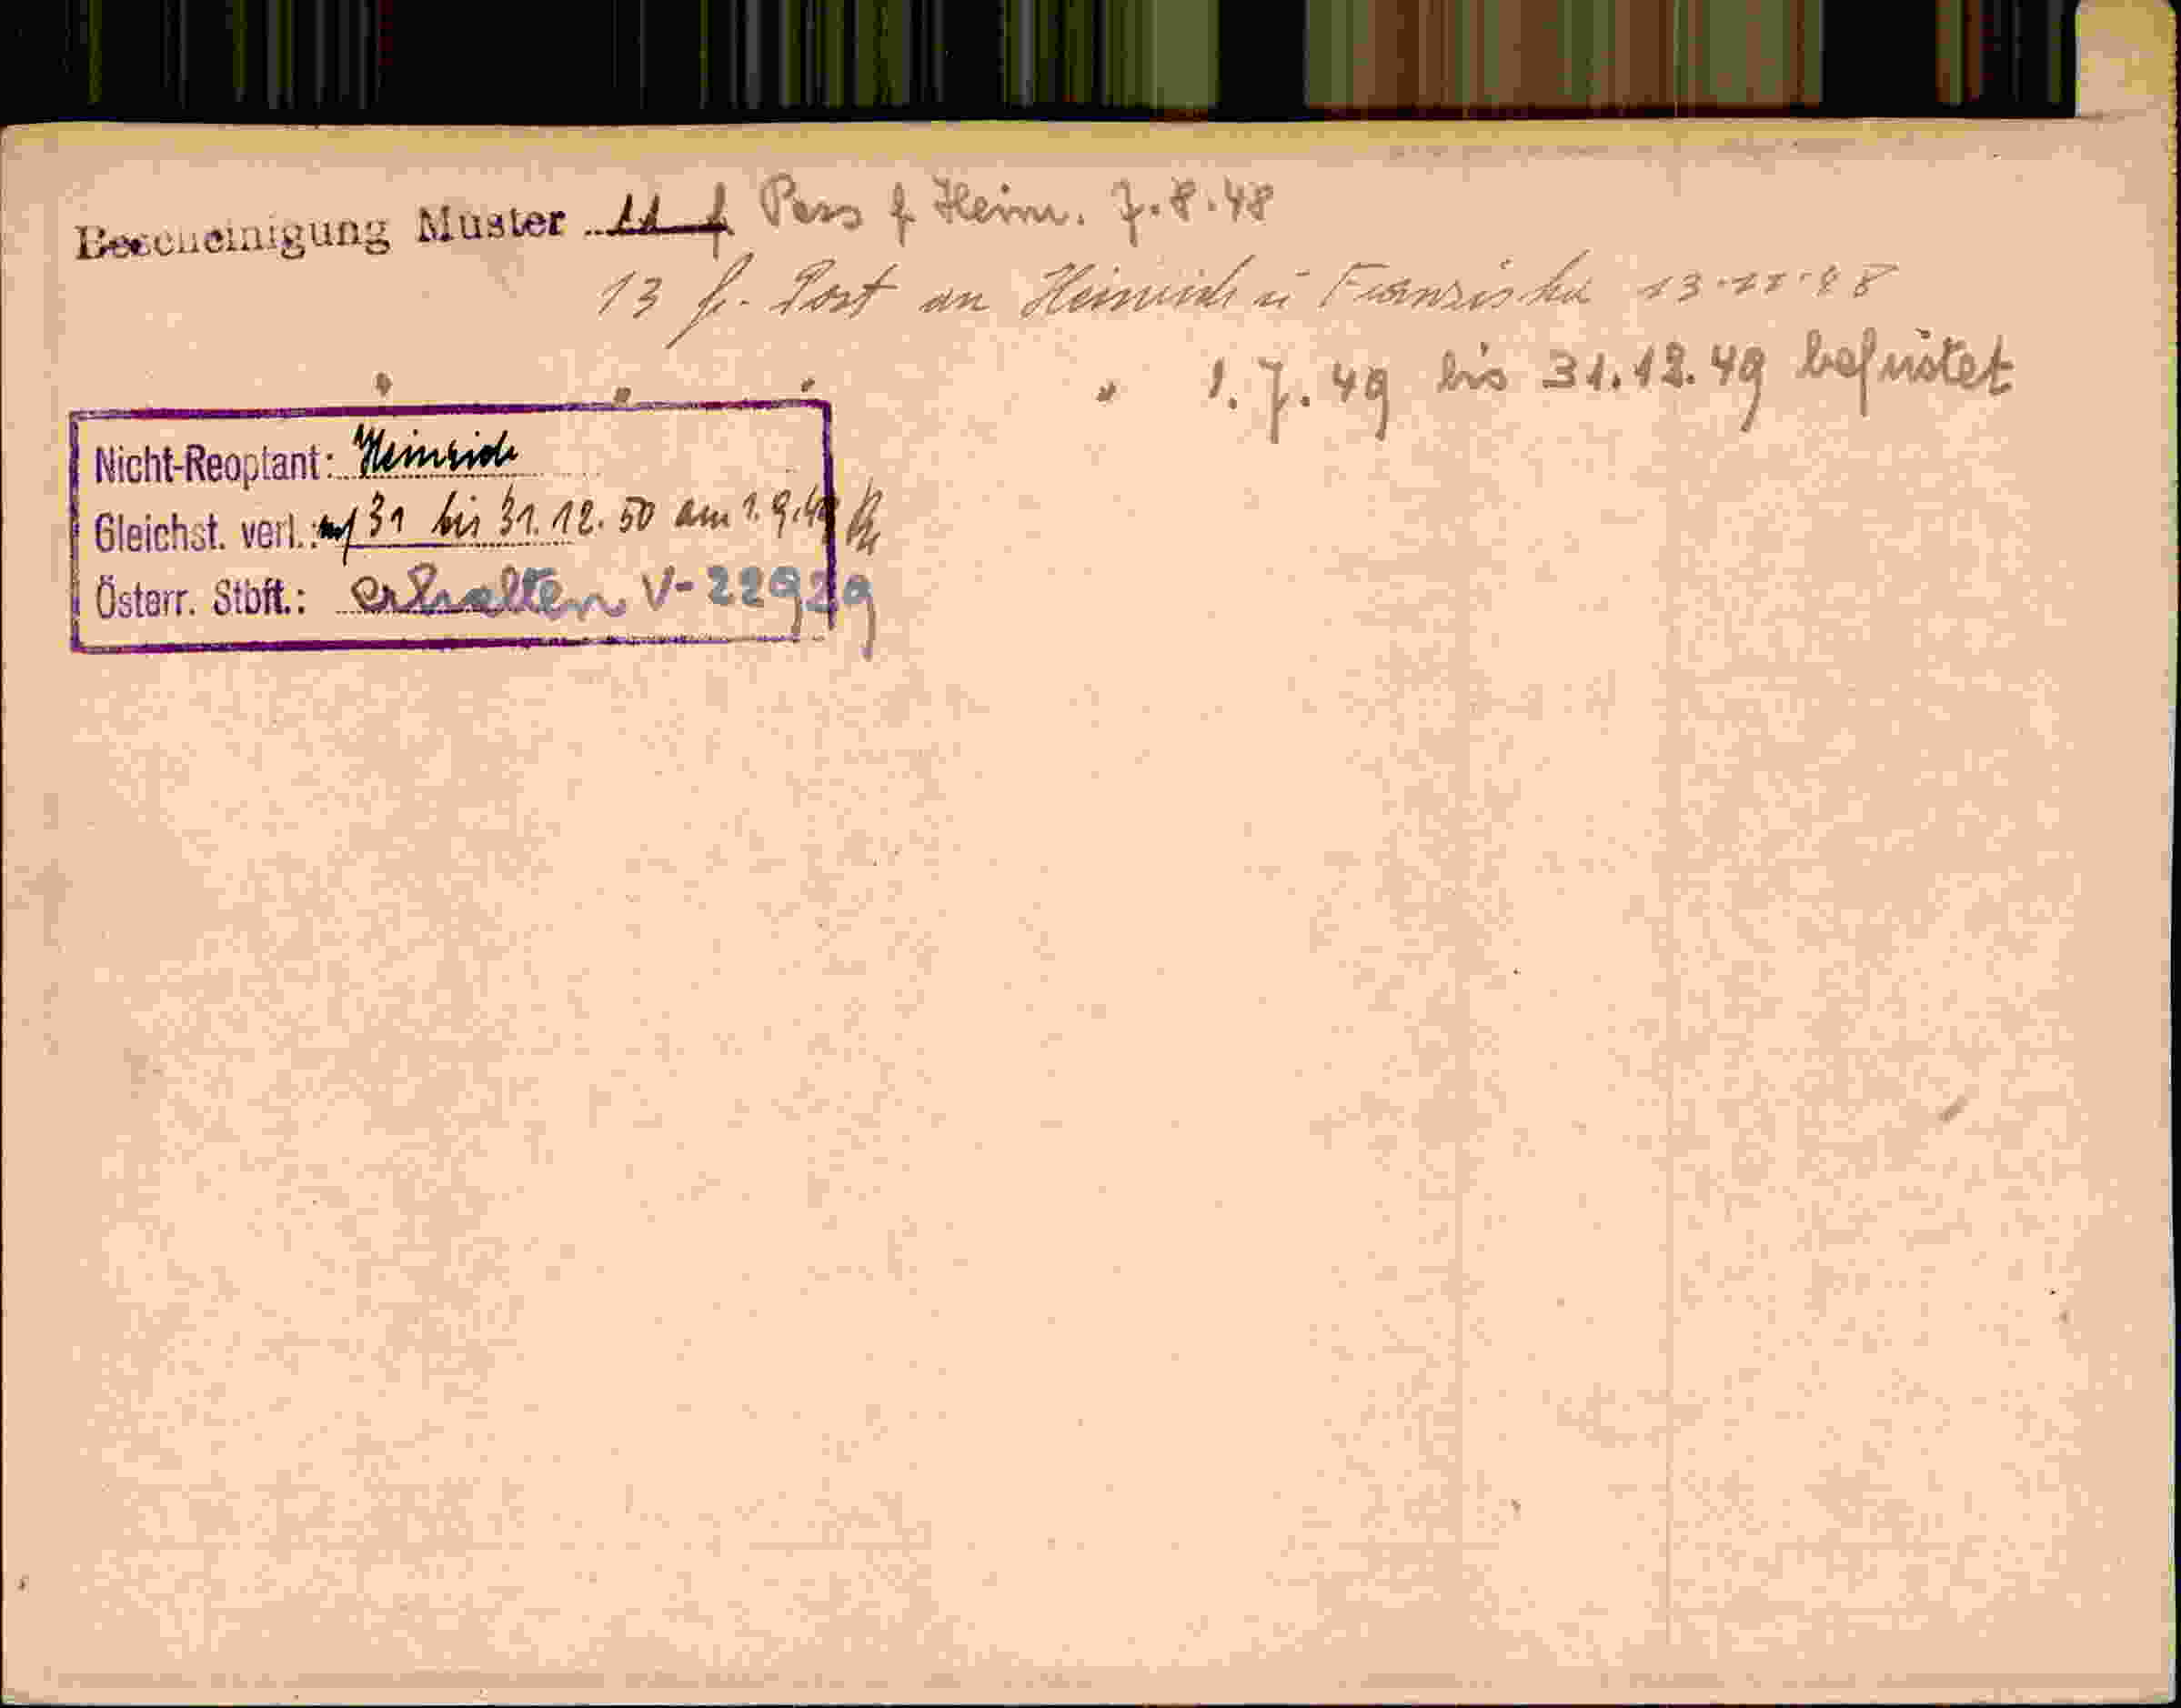 Bescheinigung Muster 11 f Pass f Heinr. 7.8.48
13 f. Post an Heinrich u Franziska 13.11.48
" " " " 1.7.49 bis 31.12.49 befristet
Nicht-Reoptant: Heinrich
Gleichst. verl.: auf 31 bis 31.12.50 am 1.9.49
Österr. Stbft.: erhalten V-22929